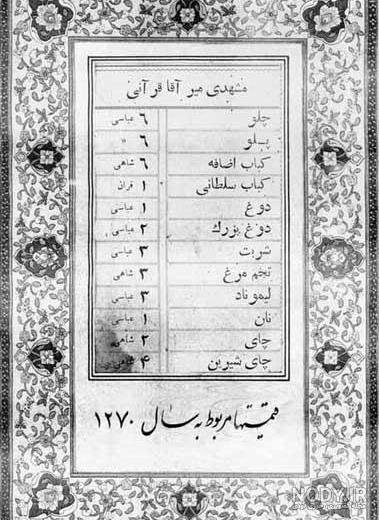 مشهدی میر آقا قرآنی
چلو ۶ عباسی
پلو ۶ "
کباب اضافه ۶ شاهی
کباب سلطانی ۱ قران
دوغ ۱ عباسی
دوغ بزرگ ۲ عباسی
شربت ۳ عباسی
تخم مرغ ۳ شاهی
لیموناد ۳ عباسی
نان ۱ عباسی
چای ۲ شاهی
چای شیرین ۴ شاهی
قیمتها مربوط به سال ۱۲۷۰
NODY.IR